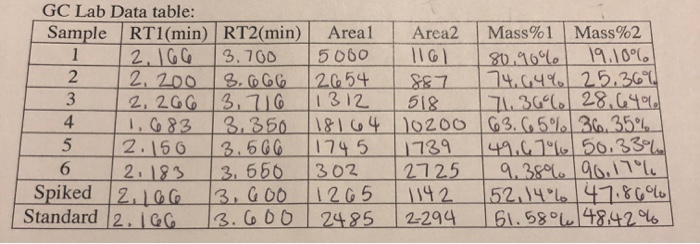 GC Lab Data table:
Sample RT1(min) RT2(min) Area1 Area2 Mass%1 Mass%2
1 2.166 3.700 1161 80.90% 19.10%
2 2.200 3.666 2654 887 74.64% 25.36%
3 2.266 3.716 1312 518 71.36% 28.64%
4 1.683 3.350 18164 10200 63.65% 36.35%
5 2.150 3.566 1745 1739 49.67% 50.33%
6 2.183 3.550 302 2725 9.38% 90.17%
Spiked 2.166 3.600 1265 1142 52.14% 47.86%
Standard 2.166 3.600 2485 2294 51.58% 48.42%